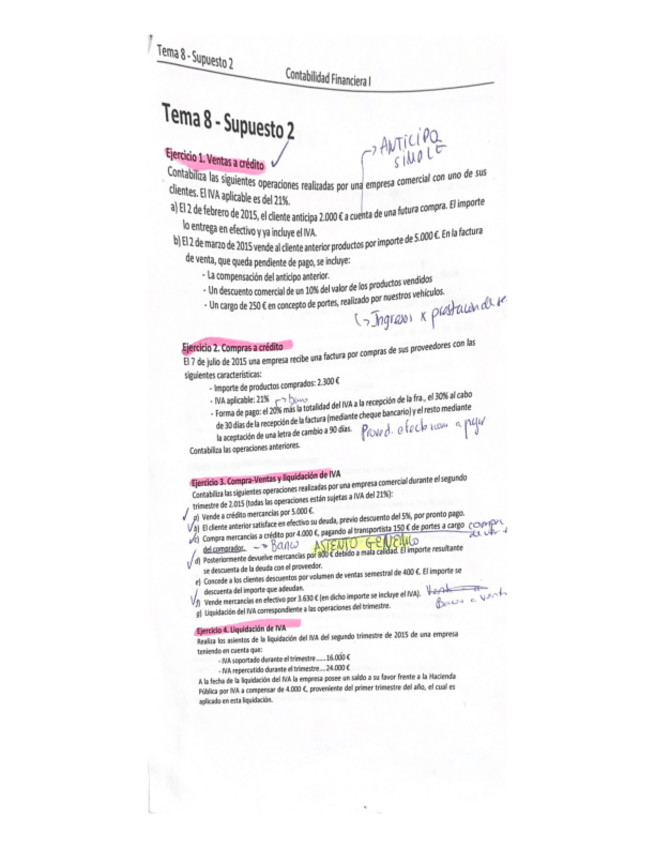 Tema 8 - Supuesto 2
Contabilidad Financiera I
Tema 8 - Supuesto 2
Ejercicio 1. Ventas a crédito
ANTICIPO
SIMPLE
Contabiliza las siguientes operaciones realizadas por una empresa comercial con uno de sus
clientes. El IVA aplicable es del 21%.
a) El 2 de febrero de 2015, el cliente anticipa 2.000 € a cuenta de una futura compra. El importe
lo entrega en efectivo y ya incluye el IVA.
b) El 2 de marzo de 2015 vende al cliente anterior productos por importe de 5.000 €. En la factura
de venta, que queda pendiente de pago, se incluye:
- La compensación del anticipo anterior.
- Un descuento comercial de un 10% del valor de los productos vendidos
- Un cargo de 250 € en concepto de portes, realizado por nuestros vehículos.
Ingresos x prestación de
Ejercicio 2. Compras a crédito
El 7 de julio de 2015 una empresa recibe una factura por compras de sus proveedores con las
siguientes características:
- Importe de productos comprados: 2.300 €
- IVA aplicable: 21%
- Forma de pago: el 20% más la totalidad del IVA a la recepción de la fra., el 30% al cabo
de 30 días de la recepción de la factura (mediante cheque bancario) y el resto mediante
la aceptación de una letra de cambio a 90 días.
Proved. efect com a pagar
Contabiliza las operaciones anteriores.
Ejercicio 3. Compra-Ventas y liquidación de IVA
Contabiliza las siguientes operaciones realizadas por una empresa comercial durante el segundo
trimestre de 2.015 (todas las operaciones están sujetas a IVA del 21%):
a) Vende a crédito mercancías por 5.000 €.
b) El cliente anterior satisface en efectivo su deuda, previo descuento del 5%, por pronto pago.
c) Compra mercancías a crédito por 4.000 €, pagando al transportista 150 € de portes a cargo
del comprador. → Banco ASIENTO GENERICO
d) Posteriormente devuelve mercancías por 800 € debido a mala calidad. El importe resultante
se descuenta de la deuda con el proveedor.
e) Concede a los clientes descuentos por volumen de ventas semestral de 400 €. El importe se
descuenta del importe que adeudan.
f) Vende mercancías en efectivo por 3.630 € (en dicho importe se incluye el IVA).
Banco a venta
g) Liquidación del IVA correspondiente a las operaciones del trimestre.
Ejercicio 4. Liquidación de IVA
Realiza los asientos de la liquidación del IVA del segundo trimestre de 2015 de una empresa
teniendo en cuenta que:
- IVA soportado durante el trimestre......16.000 €
- IVA repercutido durante el trimestre....24.000 €
A la fecha de la liquidación del IVA la empresa posee un saldo a su favor frente a la Hacienda
Pública por IVA a compensar de 4.000 €, proveniente del primer trimestre del año, el cual es
aplicado en esta liquidación.